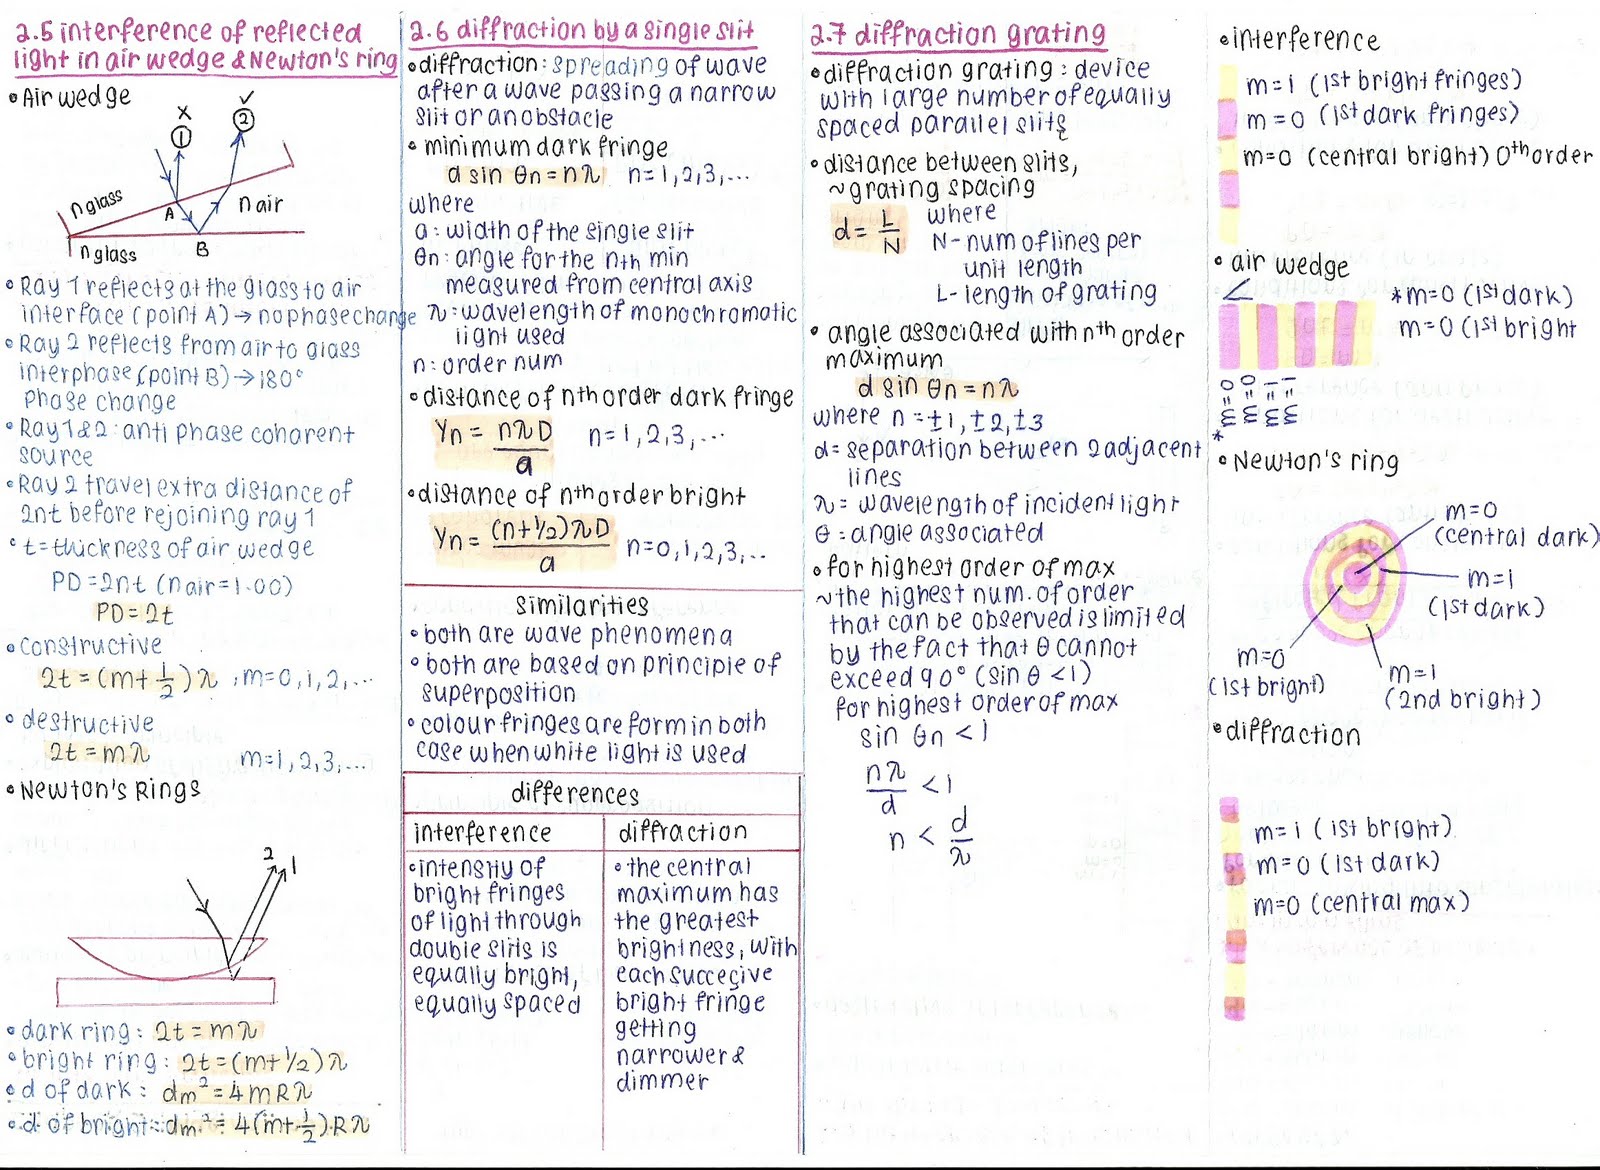 2.5 interference of reflected
light in air wedge & Newton's ring
• Air wedge
X
✓
1
2
n glass
A
n air
n glass
B
• Ray 1 reflects at the glass to air
interface (point A) → no phase change
• Ray 2 reflects from air to glass
interphase (point B) → 180°
phase change
• Ray 1 & 2 : anti phase coharent
source
• Ray 2 travel extra distance of
2nt before rejoining ray 1
• t = thickness of air wedge
PD = 2nt (n air = 1.00)
PD = 2t
• constructive
2t = (m + 1/2) λ , m = 0, 1, 2, ...
• destructive
2t = mλ m = 1, 2, 3, ...
• Newton's Rings
2
1
• dark ring : 2t = mλ
• bright ring : 2t = (m + 1/2) λ
• d of dark : dm² = 4mRλ
• d of bright : dm² = 4(m + 1/2) Rλ
2.6 diffraction by a single slit
• diffraction : spreading of wave
after a wave passing a narrow
slit or an obstacle
• minimum dark fringe
a sin θn = nλ n = 1, 2, 3, ...
where
a : width of the single slit
θn : angle for the nth min
measured from central axis
λ : wavelength of monochromatic
light used
n : order num
• distance of nth order dark fringe
Yn = nλD/a n = 1, 2, 3, ...
• distance of nth order bright
Yn = (n + 1/2) λD/a n = 0, 1, 2, 3, ...
similarities
• both are wave phenomena
• both are based on principle of
superposition
• colour fringes are form in both
case when white light is used
differences
interference
• intensity of
bright fringes
of light through
double slits is
equally bright,
equally spaced
diffraction
• the central
maximum has
the greatest
brightness, with
each succecive
bright fringe
getting
narrower &
dimmer
2.7 diffraction grating
• diffraction grating : device
with large number of equally
spaced parallel slits
• distance between slits,
~ grating spacing
d = L/N where
N - num of lines per
unit length
L - length of grating
• angle associated with nth order
maximum
d sin θn = nλ
where n = ±1, ±2, ±3
d = separation between 2 adjacent
lines
λ = wavelength of incident light
θ = angle associated
• for highest order of max
~ the highest num. of order
that can be observed is limited
by the fact that θ cannot
exceed 90° (sin θ < 1)
for highest order of max
sin θn < 1
nλ/d < 1
n < d/λ
• interference
m = 1 (1st bright fringes)
m = 0 (1st dark fringes)
m = 0 (central bright) 0th order
• air wedge
* m = 0 (1st dark)
m = 0 (1st bright
m = 0
m = 0
m = 1
m = 1
*
• Newton's ring
m = 0
(central dark)
m = 1
(1st dark)
m = 0
(1st bright)
m = 1
(2nd bright)
• diffraction
m = 1 (1st bright)
m = 0 (1st dark)
m = 0 (central max)